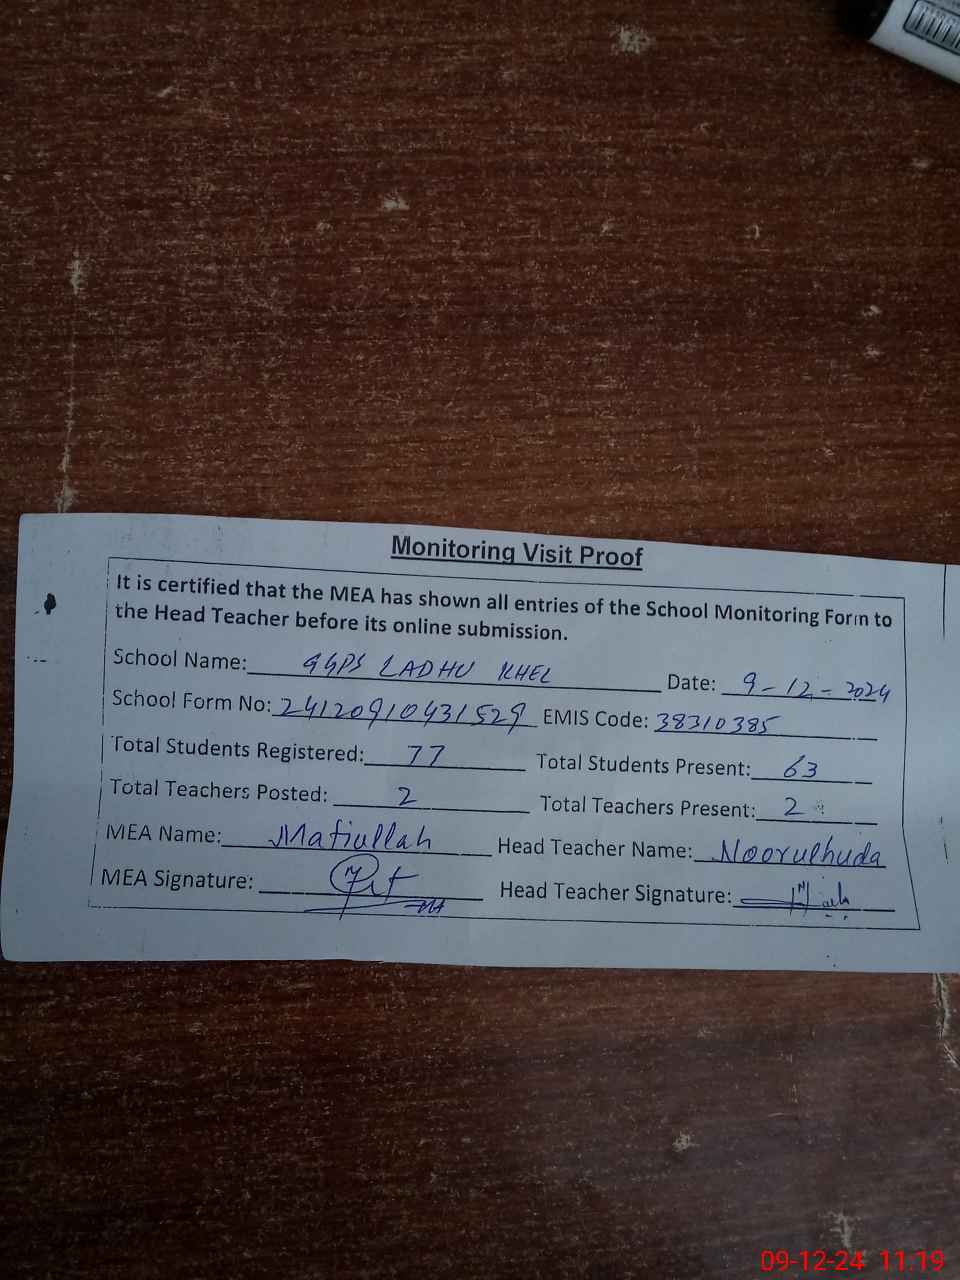 Monitoring Visit Proof
It is certified that the MEA has shown all entries of the School Monitoring Form to
the Head Teacher before its online submission.
School Name: GGPS LADHU KHEL Date: 9-12-2024
School Form No: 24120910431529 EMIS Code: 38310385
Total Students Registered: 77 Total Students Present: 63
Total Teachers Posted: 2 Total Teachers Present: 2
MEA Name: Matiullah Head Teacher Name: Noorulhuda
MEA Signature: Head Teacher Signature:
09-12-24 11:19